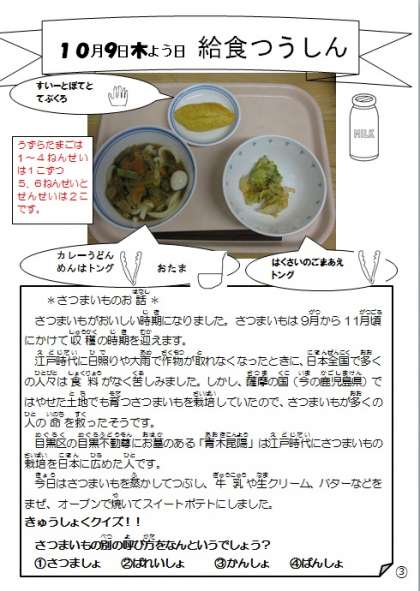 10月9日木よう日 給食つうしん
すいーとぽてと
てぶくろ
MILK
うずらたまごは
1～4ねんせい
は1こずつ
5、6ねんせいと
せんせいは2こ
です。
カレーうどん
めんはトング
おたま
はくさいのごまあえ
トング
＊さつまいものお話＊
さつまいもがおいしい時期になりました。さつまいもは9月から11月頃
にかけて収穫の時期を迎えます。
江戸時代に日照りや大雨で作物が取れなくなったときに、日本全国で多く
の人々は食料がなく苦しみました。しかし、薩摩の国（今の鹿児島県）で
はやせた土地でも育つさつまいもを栽培していたので、さつまいもが多くの
人の命を救ったそうです。
目黒区の目黒不動尊にお墓のある「青木昆陽」は江戸時代にさつまいもの
栽培を日本に広めた人です。
今日はさつまいもを蒸かしてつぶし、牛乳や生クリーム、バターなどを
まぜ、オーブンで焼いてスイートポテトにしました。
きゅうしょくクイズ！！
さつまいもの別の呼び方をなんというでしょう？
①さつましょ ②ばれいしょ ③かんしょ ④ぱんしょ
③